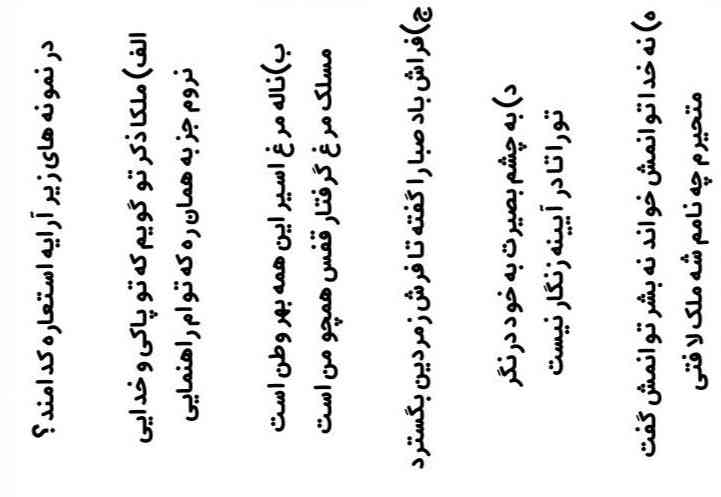 در نمونه های زیر آرایه استعاره کدامند؟
الف) ملکا ذکر تو گویم که تو پاکی و خدایی
نروم جز به همان ره که توام راهنمایی
ب) ناله مرغ اسیر این همه بهر وطن است
مسلک مرغ گرفتار قفس همچو من است
ج) فراش باد صبا را گفته تا فرش زمردین بگسترد
د) به چشم بصیرت به خود در نگر
تو را تا در آیینه زنگار نیست
ه) نه خدا توانمش خواند نه بشر توانمش گفت
متحیرم چه نامم شه ملک لا فتی